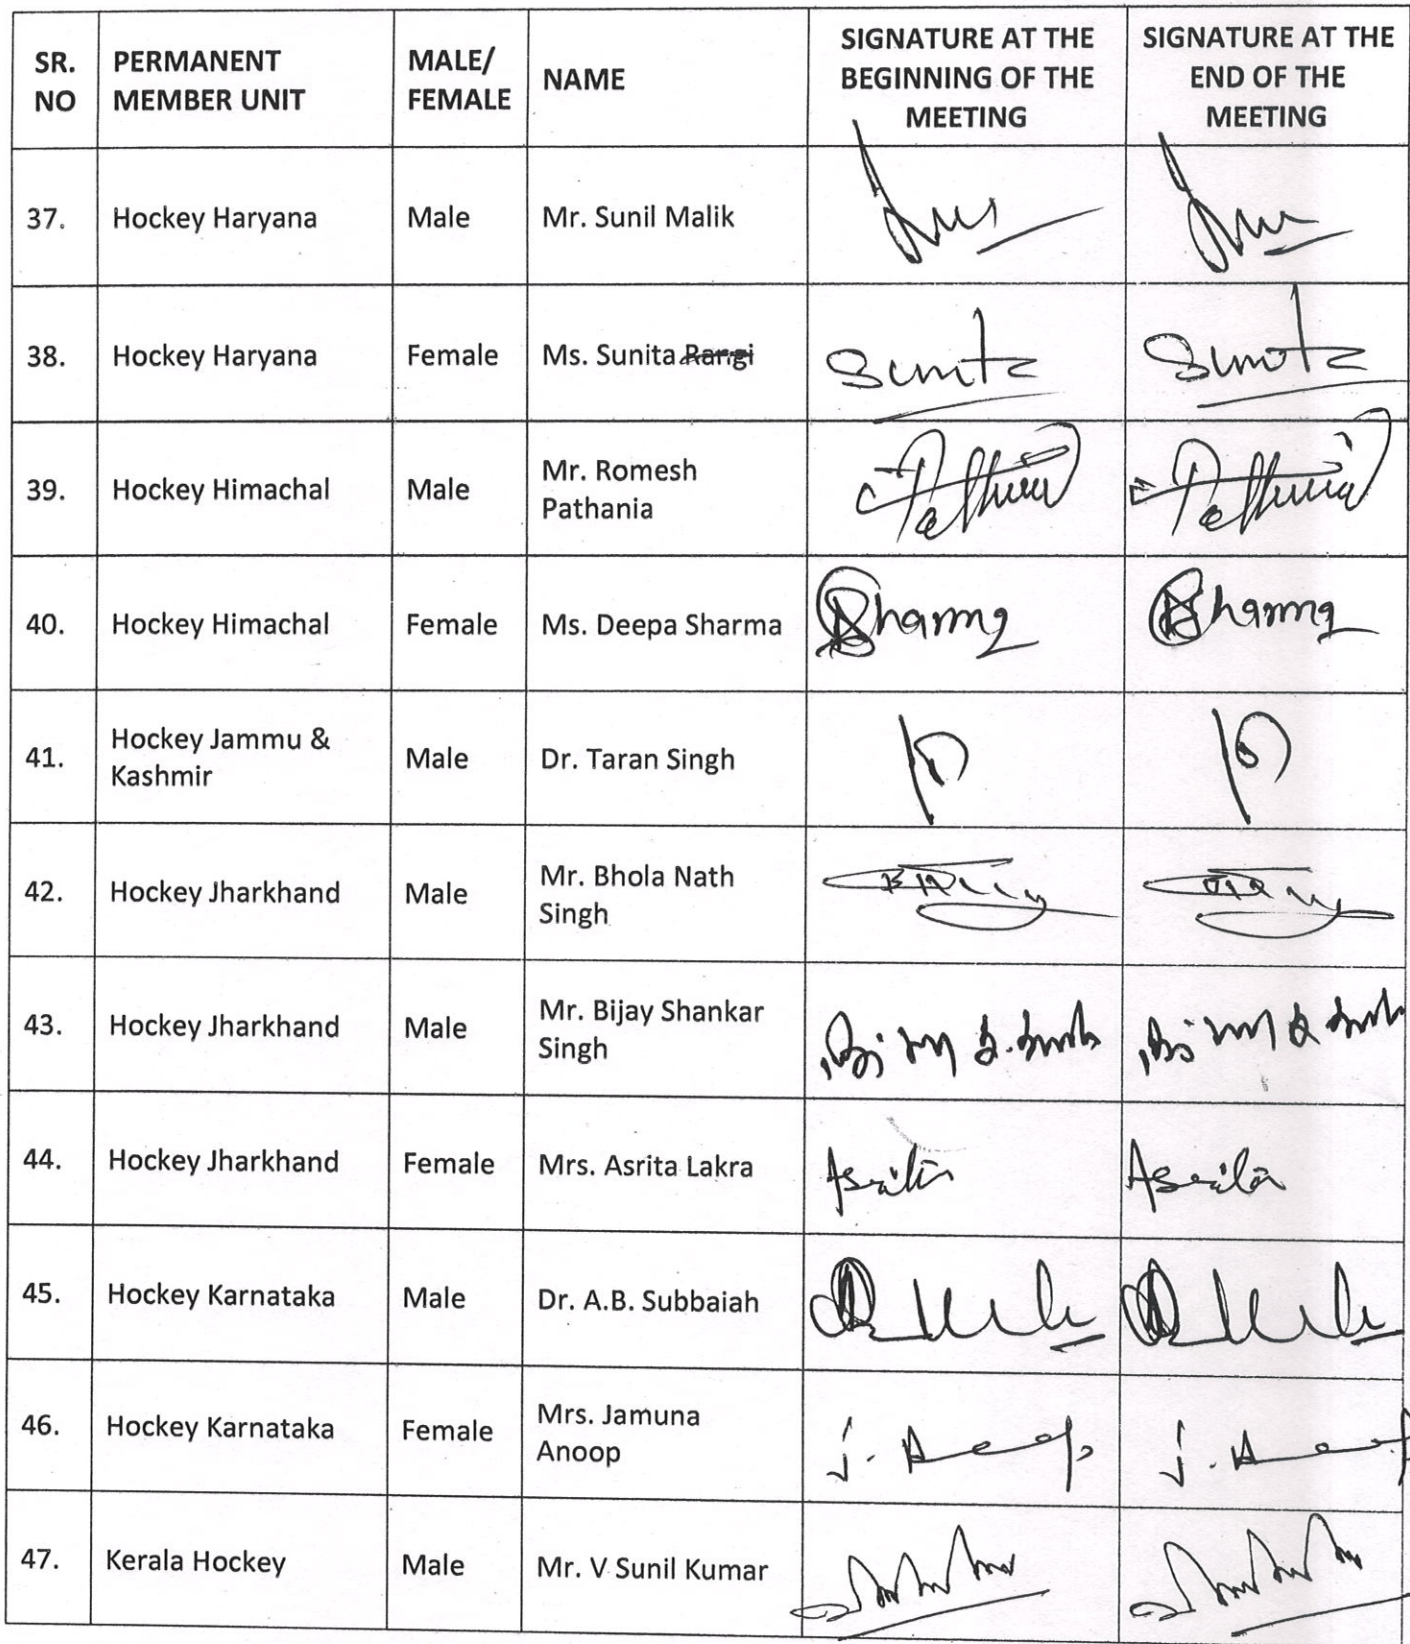 SR. NO PERMANENT MEMBER UNIT MALE/ FEMALE NAME SIGNATURE AT THE BEGINNING OF THE MEETING SIGNATURE AT THE END OF THE MEETING
37. Hockey Haryana Male Mr. Sunil Malik
38. Hockey Haryana Female Ms. Sunita Rangi Sunita Sunita
39. Hockey Himachal Male Mr. Romesh Pathania
40. Hockey Himachal Female Ms. Deepa Sharma Sharma Sharma
41. Hockey Jammu & Kashmir Male Dr. Taran Singh
42. Hockey Jharkhand Male Mr. Bhola Nath Singh
43. Hockey Jharkhand Male Mr. Bijay Shankar Singh
44. Hockey Jharkhand Female Mrs. Asrita Lakra Asrita Asrita
45. Hockey Karnataka Male Dr. A.B. Subbaiah
46. Hockey Karnataka Female Mrs. Jamuna Anoop
47. Kerala Hockey Male Mr. V Sunil Kumar